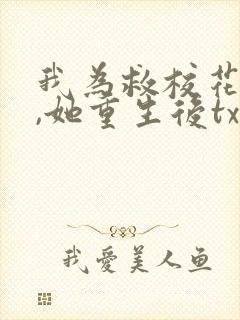 我為救校花
,她重生後tx
我愛美人鱼